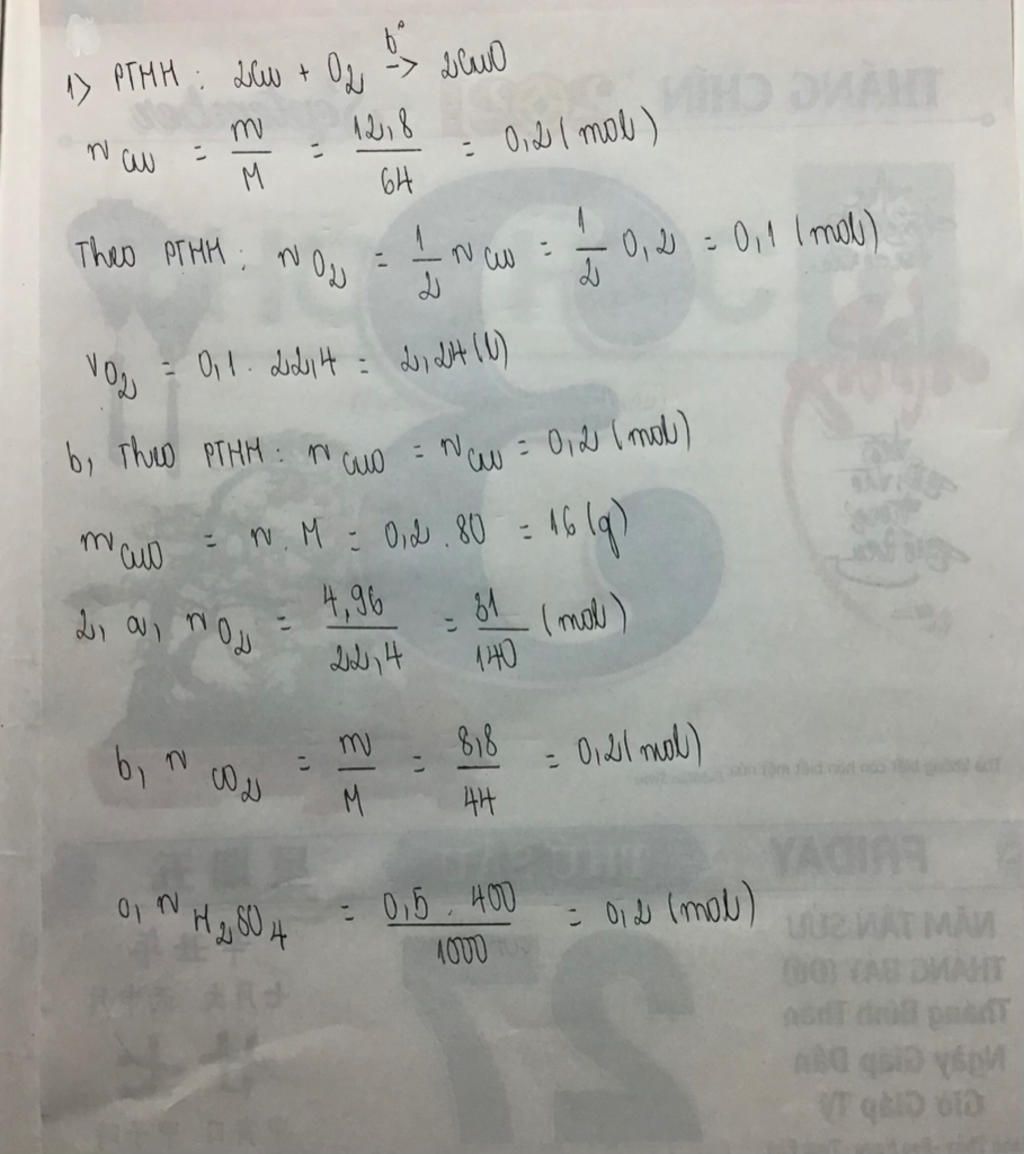 1) PTHH : 2Cu + O2 t°-> 2CuO
n Cu = m/M = 12,8/64 = 0,2 (mol)
Theo PTHH : n O2 = 1/2 n Cu = 1/2 0,2 = 0,1 (mol)
V O2 = 0,1 . 22,4 = 2,24 (l)
b, Theo PTHH : n CuO = n Cu = 0,2 (mol)
m CuO = n . M = 0,2 . 80 = 16 (g)
2, a, n O2 = 4,96/22,4 = 31/140 (mol)
b, n CO2 = m/M = 8,8/44 = 0,2 (mol)
c, n H2SO4 = 0,5 . 400/1000 = 0,2 (mol)
THÁNG CHÍN 2021 September
FRIDAY
NĂM TÂN SỬU
THÁNG BẢY (ĐỦ)
Tháng Bính Thân
Ngày Giáp Dần
Giờ Giáp Tý
27